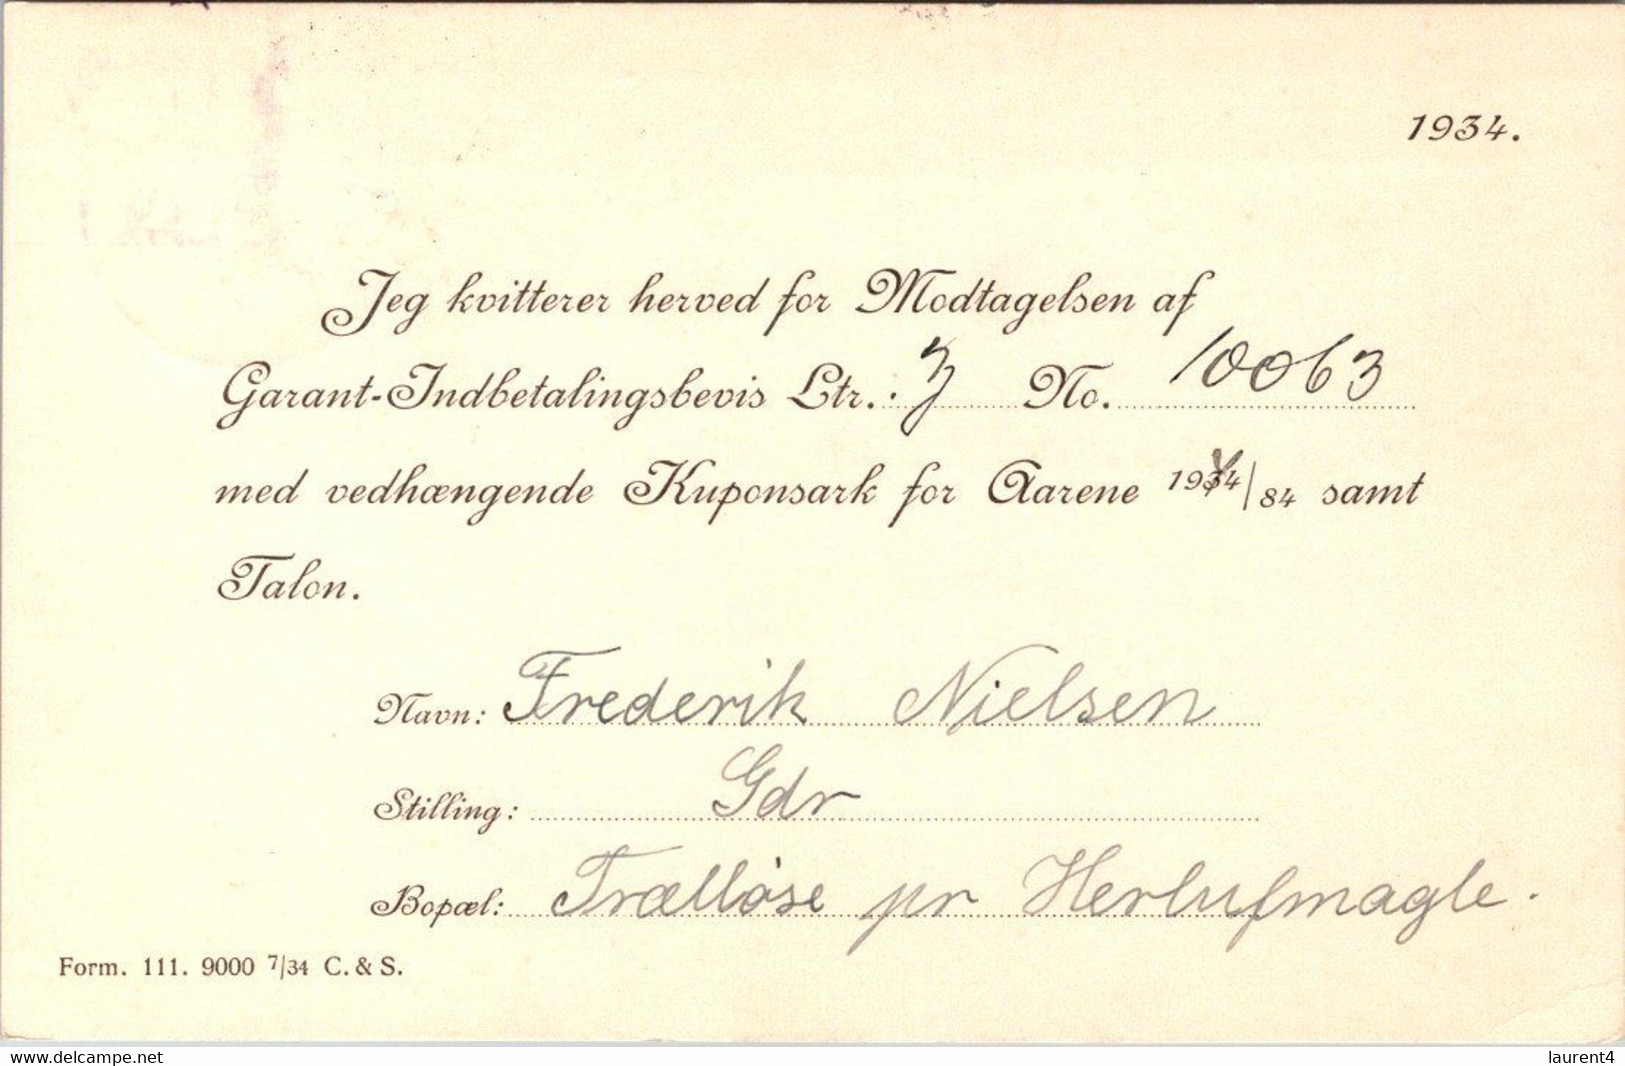 1934.
Jeg kvitterer herved for Modtagelsen af
Garant-Indbetalingsbevis Ltr.: No. 10063
med vedhængende Kuponsark for Aarene 1944/84 samt
Talon.
Navn: Frederik Nielsen
Stilling: Gdr
Bopæl: Trælløse pr Herlufmagle.
Form. 111. 9000 7/34 C. & S.
www.delcampe.net
laurent4